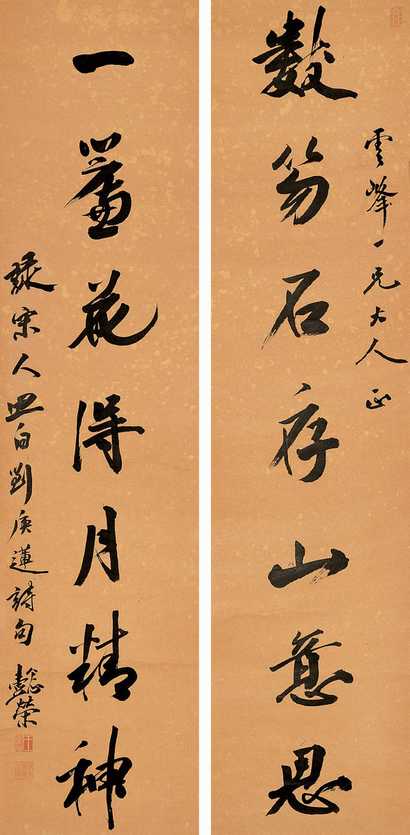 雲峰一兄大人正
數笏石存山意思
一簾花得月精神
録宋人白劉庚蓮詩句 懿榮